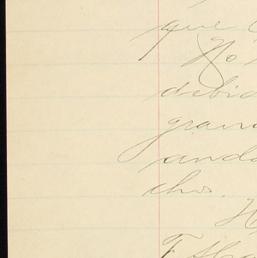 que
No
debid
gran
anda
chos.
H